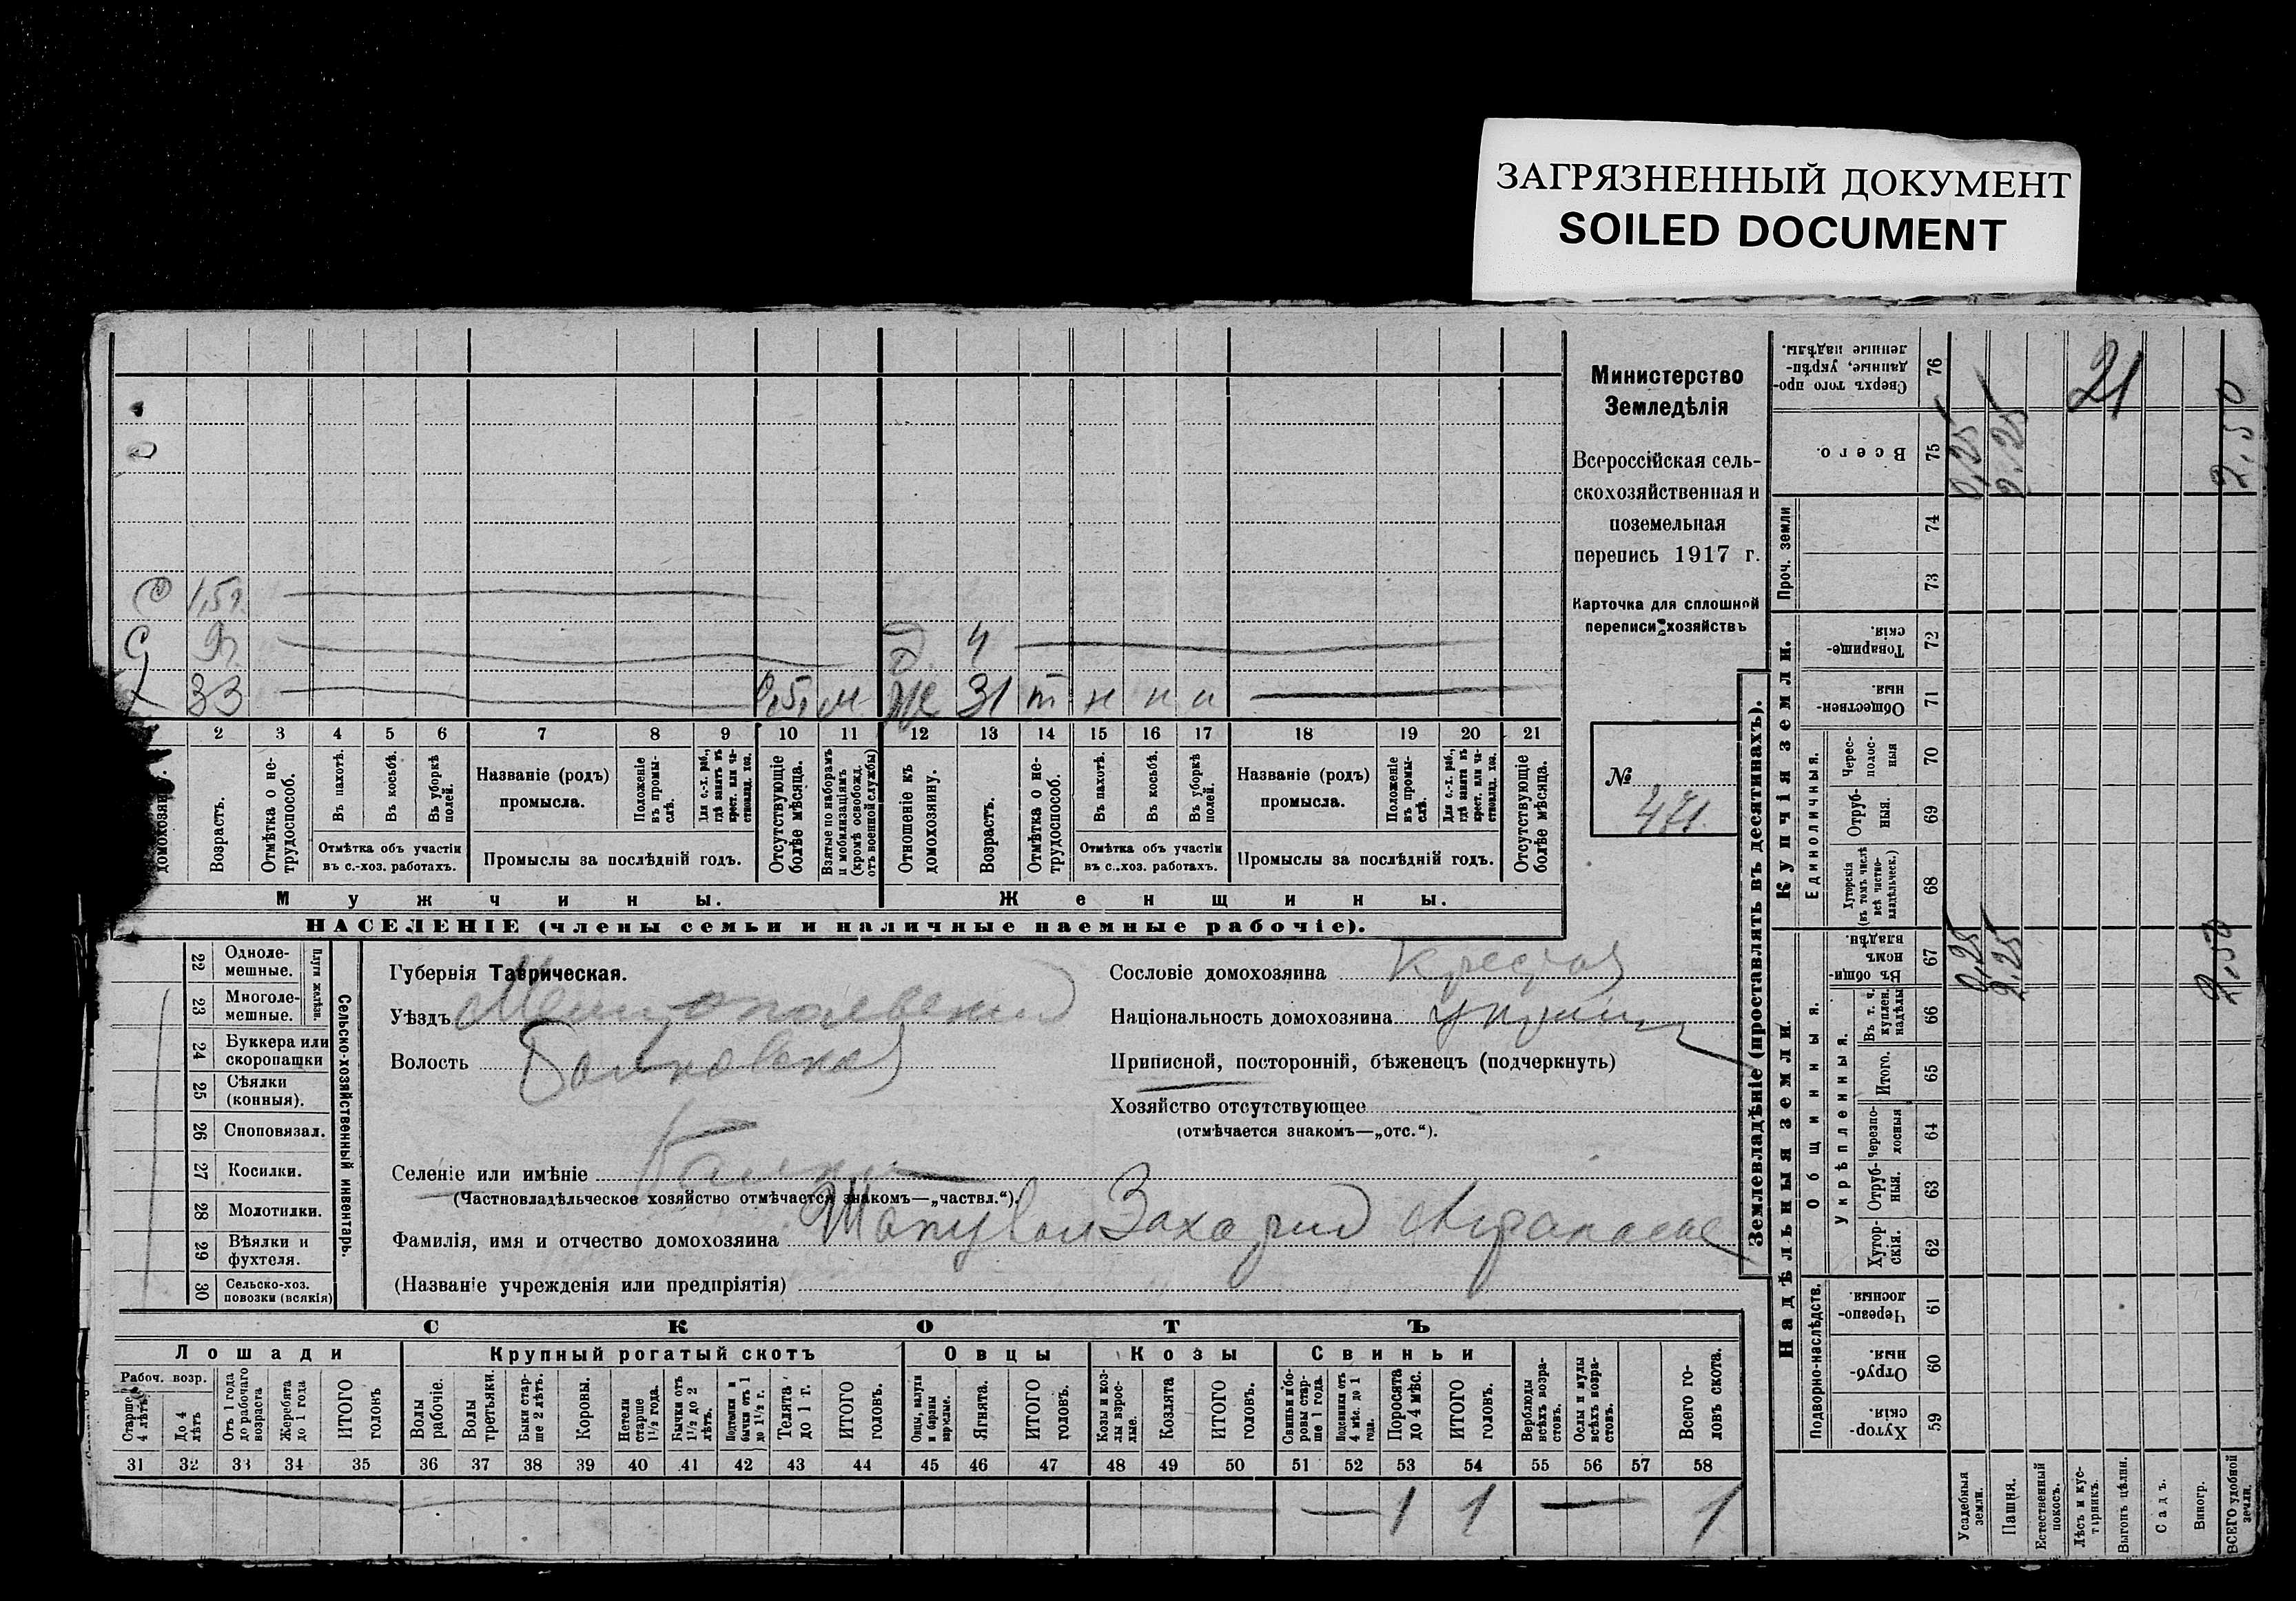 ЗАГРЯЗНЕННЫЙ ДОКУМЕНТ
SOILED DOCUMENT
Министерство
Земледѣлія
Всероссійская сель-
скохозяйственная и
поземельная
перепись 1917 г.
Карточка для сплошной
переписи хозяйствъ
№
471.
1,5 г.
4
33 м Ж 31 т н н н
2 3 4 5 6 7 8 9 10 11 12 13 14 15 16 17 18 19 20 21
домохозяи
Возрастъ.
Отмѣтка о не-
трудоспособ.
Въ пахотѣ.
Въ косьбѣ.
Въ уборкѣ
полей.
Отмѣтка объ участіи
въ с.-хоз. работахъ.
Названіе (родъ)
промысла.
Положеніе
въ промы-
слѣ.
Для с.-х. раб.,
гдѣ занятъ въ
крест. или ча-
стновлад. хоз.
Промыслы за послѣдній годъ.
Отсутствующіе
болѣе мѣсяца.
Взятые по наборамъ
и мобилизаціямъ
(кромѣ освобожд.
отъ военной службы)
Отношеніе къ
домохозяину.
Возрастъ.
Отмѣтка о не-
трудоспособ.
Въ пахотѣ.
Въ косьбѣ.
Въ уборкѣ
полей.
Отмѣтка объ участіи
въ с.-хоз. работахъ.
Названіе (родъ)
промысла.
Положеніе
въ промы-
слѣ.
Для с.-х. раб.,
гдѣ занята въ
крест. или ча-
стновлад. хоз.
Промыслы за послѣдній годъ.
Отсутствующіе
болѣе мѣсяца.
Мужчины.
Женщины.
НАСЕЛЕНІЕ (члены семьи и наличные наемные рабочіе).
22 Одноле-
мешные.
23 Многоле-
мешные.
Плуги желѣзн.
24 Буккера или
скоропашки
25 Сѣялки
(конныя).
26 Сноповязал.
27 Косилки.
28 Молотилки.
29 Вѣялки и
фухтеля.
30 Сельско-хоз.
повозки (всякія)
Сельско-хозяйственный инвентарь.
Губернія Таврическая.
Уѣздъ Мелитопольский
Волость Балковская
Селеніе или имѣніе Балки
(Частновладѣльческое хозяйство отмѣчается знакомъ—„частвл.“).
Фамилія, имя и отчество домохозяина Шаповал Захарий Афанасов
(Названіе учрежденія или предпріятія)
Сословіе домохозяина
Національность домохозяина
Приписной, посторонній, бѣженецъ (подчеркнуть)
Хозяйство отсутствующее
(отмѣчается знакомъ—„отс.“).
СКОТЪ
Лошади
Крупный рогатый скотъ
Овцы
Козы
Свиньи
Рабоч. возр.
Старше
4 лѣтъ
До 4
лѣтъ
Отъ 1 года
до рабочаго
возраста
Жеребята
до 1 года
ИТОГО
головъ
Волы
рабочіе.
Волы
третьяки.
Быки стар-
ше 2 лѣтъ.
Коровы.
Нетели
старше
1½ года.
Бычки отъ
1½ до 2
лѣтъ.
Подтелки и
бычки отъ 1
до 1½ г.
Телята
до 1 г.
ИТОГО
головъ.
Овцы, валухи
и бараны
взрослые.
Ягнята.
ИТОГО
головъ.
Козы и коз-
лы взрос-
лые.
Козлята
ИТОГО
головъ.
Свиньи и бо-
ровы стар-
ше 1 года.
Подсвинки отъ
4 мѣс. до 1
года.
Поросята
до 4 мѣс.
ИТОГО
головъ.
Верблюды
всѣхъ возра-
стовъ.
Ослы и мулы
всѣхъ возра-
стовъ.
Всего го-
ловъ скота.
31 32 33 34 35 36 37 38 39 40 41 42 43 44 45 46 47 48 49 50 51 52 53 54 55 56 57 58
1 1 1
Землевладѣніе (проставлять въ десятинахъ).
Надѣльныя земли.
Купчія земли.
Подворно-наслѣдств.
Общинныя.
Укрѣпленныя.
Единоличныя.
Проч. земли
Сверхъ того про-
данные, укрѣп-
ленные надѣлы.
76
21
Всего.
75
0,25
2,25
2,50
74
73
Товарище-
скія.
72
Обществен-
ныя
71
Черес-
полос-
ныя
70
Отруб-
ныя.
69
Хуторскія
(въ томъ числѣ
всѣ частно-
владѣльческ.)
68
Въ общи-
номъ
владѣн.
67
0,25
2,25
2,50
Въ т. ч.
куплен.
надѣлы
66
Итого.
65
Черезпо-
лосныя
64
Отруб-
ныя.
63
Хутор-
скія.
62
Черезпо-
лосныя.
61
Отруб-
ныя.
60
Хутор-
скія.
59
Усадебныя
земли.
Пашня.
Естественный
покосъ.
Лѣсъ и кус-
тарникъ.
Выгонъ цѣлин.
Садъ.
Виногр.
ВСЕГО удобной
земли.